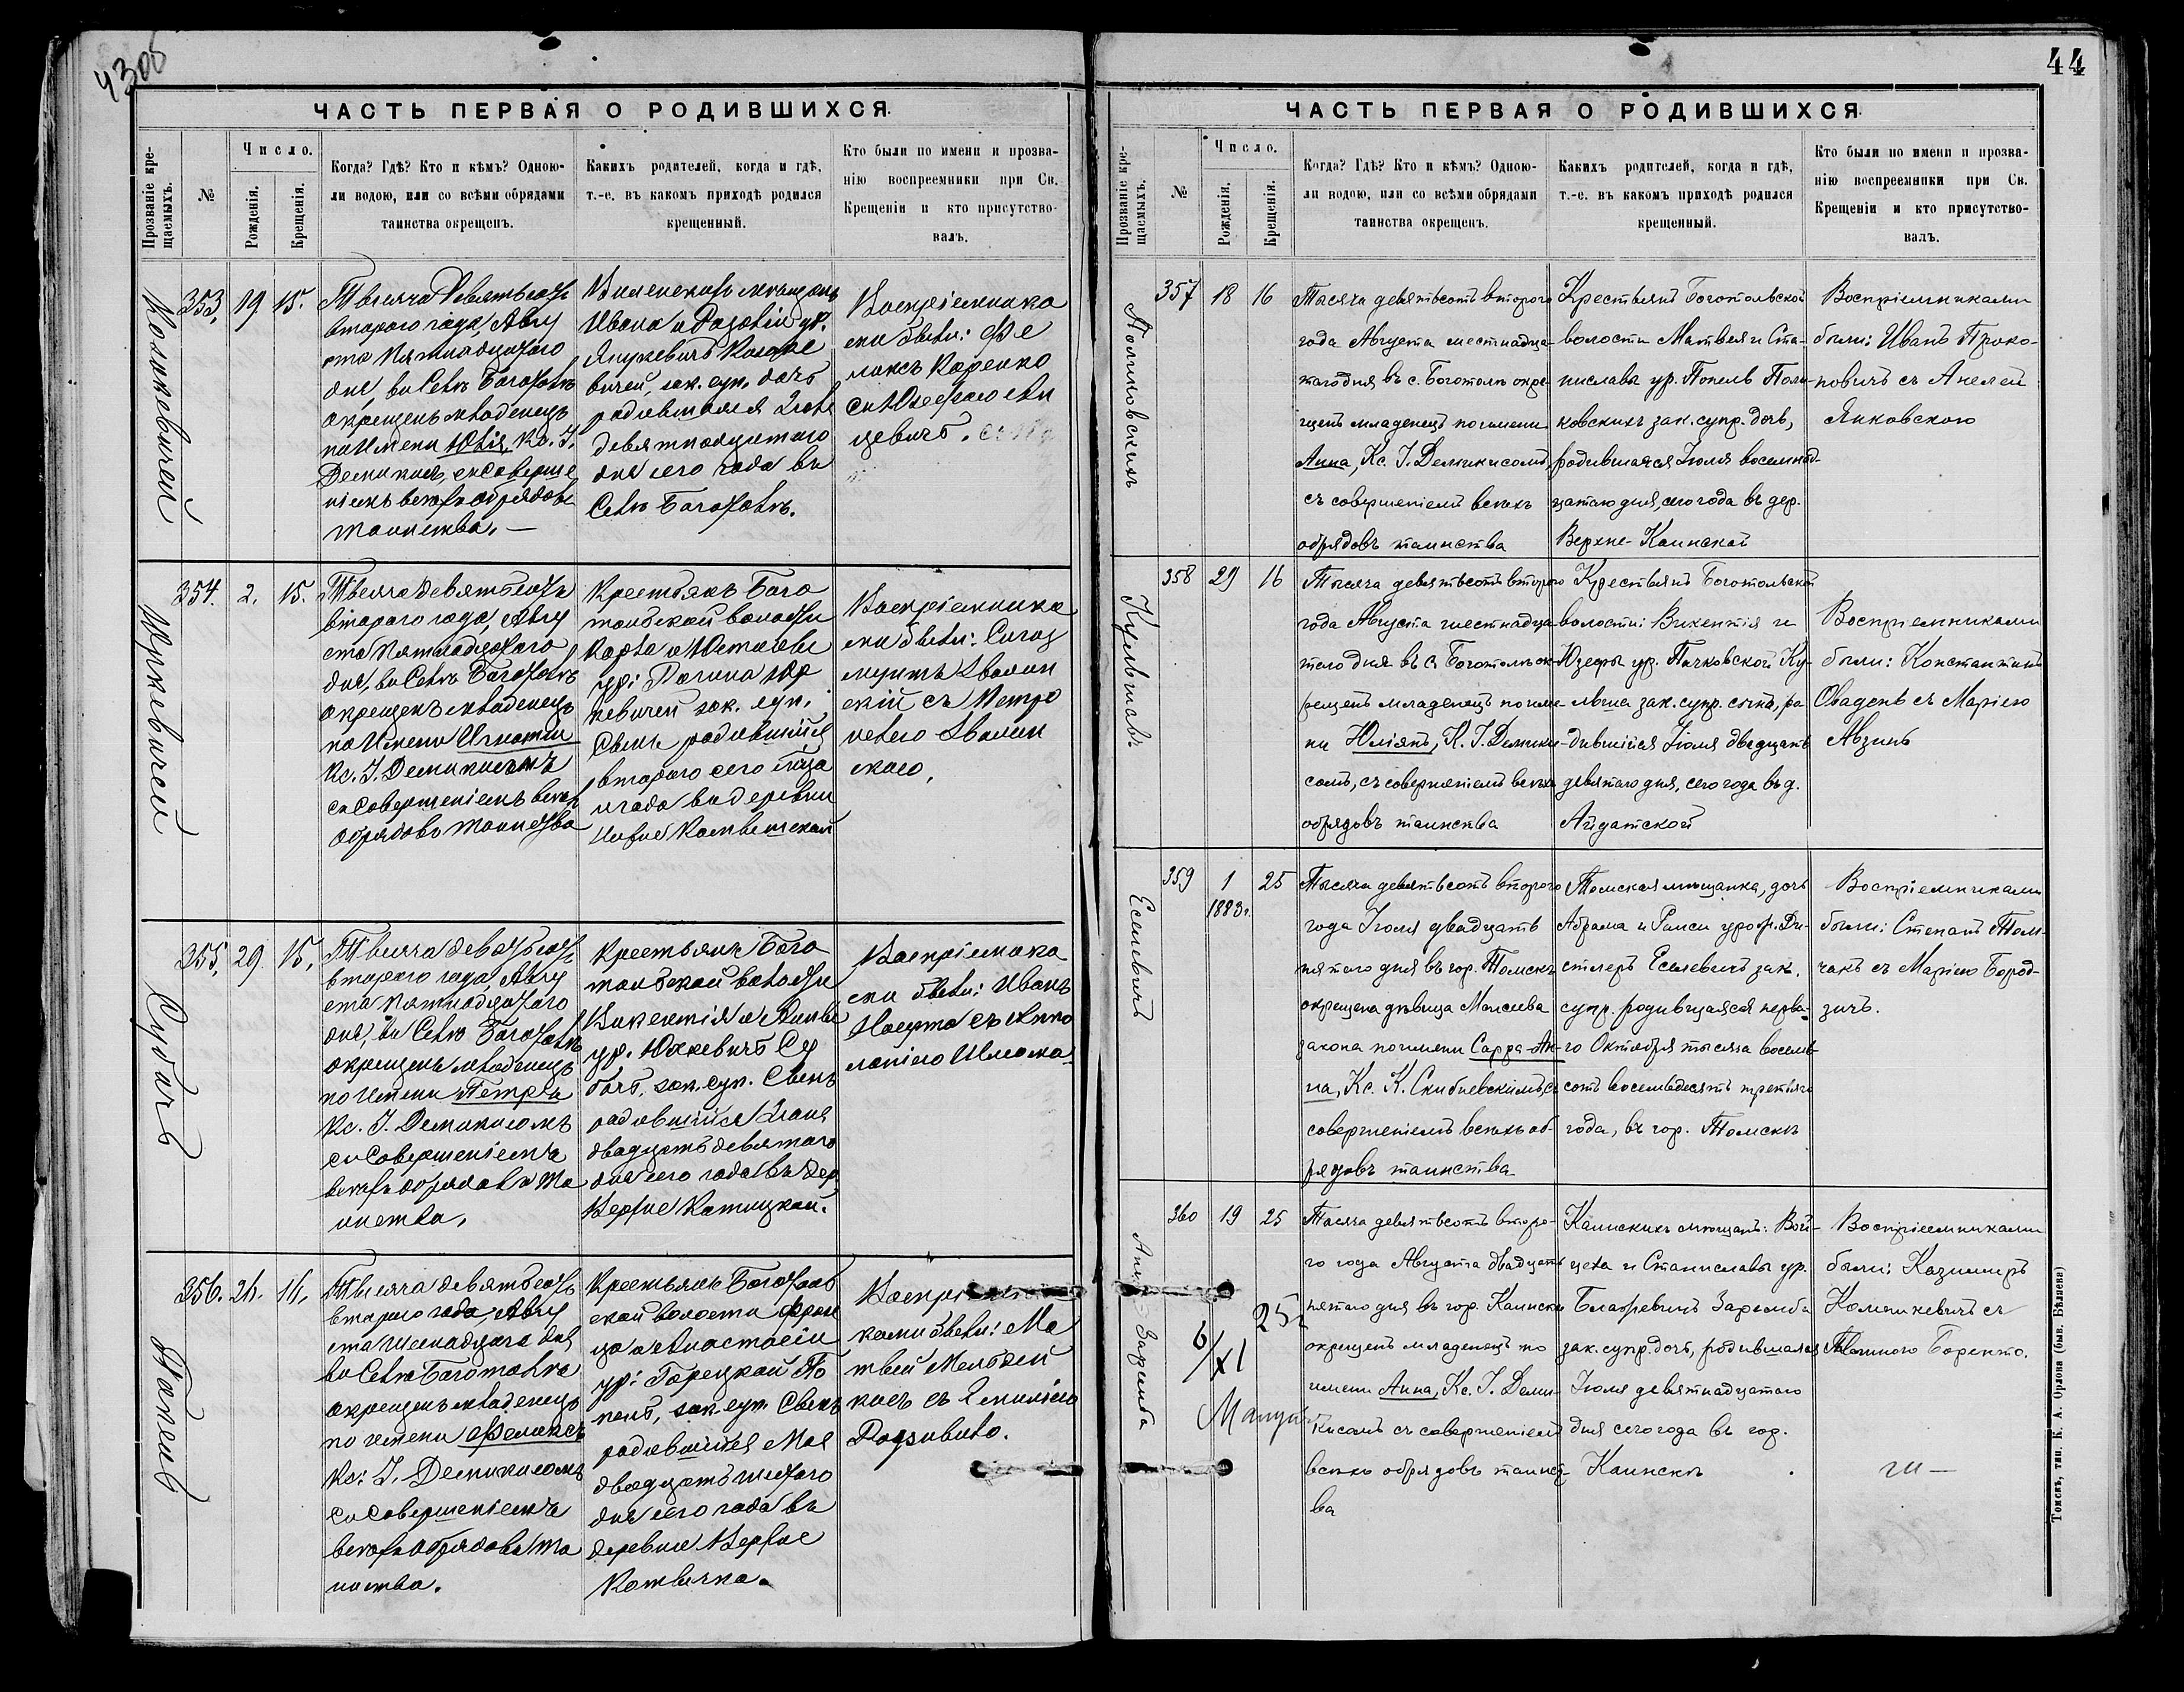 43об
ЧАСТЬ ПЕРВАЯ О РОДИВШИХСЯ.
Прозваніе кре-
щаемыхъ.
№
Число.
Рожденія.
Крещенія.
Когда? Гдѣ? Кто и кѣмъ? Одною-
ли водою, или со всѣми обрядами
таинства окрещенъ.
Какихъ родителей, когда и гдѣ,
т.-е. въ какомъ приходѣ родился
крещенный.
Кто были по имени и прозва-
нію воспреемники при Св.
Крещеніи и кто присутство-
валъ.
353. 19 15.
Тысяча Девятьсотъ
втораго года, Авгу
ста Пятнадцатого
дня, въ Селѣ Боготолѣ
окрещенъ младенецъ
по Имени Юлія, Кс. I.
Демикисъ, съ Соверше
ніемъ всехъ обрядовъ
таинства. —
Ивана и
вичей, зак. суп. дочь
родившаяся
девятнадцатого
дня сего года въ
Селѣ Боготолѣ.
Воспріемника
ми были: Фе
ликсъ
Юркевичей
354. 2. 15.
Тысяча девятьсотъ
втораго года, Авгу
ста Пятнадцатого
дня, въ Селѣ Боготолѣ
окрещенъ младенецъ
по Имени Игнатій
Кс. I. Демикисомъ
съ Совершеніемъ всехъ
обрядовъ таинства
Крестьянъ Бого
тольской волости
Карла и
ур:
кевичей зак. суп.
Сынъ родившійся
втораго сего м-ца
и года въ деревни
Воспріемника
ми были: Сигиз
мундъ
скій съ Петро
нелею
скою.
Субачъ
355. 29. 15.
Тысяча девятьсотъ
втораго года, Авгу
ста Пятнадцатого
дня, въ Селѣ Боготолѣ
окрещенъ младенецъ
по Имени Петръ
Кс. I. Демикисомъ
съ Совершеніемъ
всехъ обрядовъ Та
инства.
Крестьянъ Бого
тольской волости
Викентія и
ур. Юхкевичъ Су
бачъ, зак. суп. Сынъ
родившійся
двадцать девятого
дня сего года въ дер.
Воспріемника
ми были: Иванъ
съ Аппо
лоніею
Попель
356. 26. 16.
Тысяча девятьсотъ
втораго года, Авгу
ста Шестнадцатого дня
въ Селѣ Боготолѣ
окрещенъ младенецъ
по имени Феликсъ
Кс: I. Демикисомъ
съ Совершеніемъ
всехъ обрядовъ та
инства.
Крестьянъ Боготоль
ской волости Фран
ца и Анастасіи
ур: Горецкой По
пель, зак. суп. Сынъ
родившійся Мая
двадцать шестого
дня сего года въ
деревни Верхне
ками были: Ма
твей
съ Емиліею
44
ЧАСТЬ ПЕРВАЯ О РОДИВШИХСЯ.
Прозваніе кре-
щаемыхъ.
№
Число.
Рожденія.
Крещенія.
Когда? Гдѣ? Кто и кѣмъ? Одною-
ли водою, или со всѣми обрядами
таинства окрещенъ.
Какихъ родителей, когда и гдѣ,
т.-е. въ какомъ приходѣ родился
крещенный.
Кто были по имени и прозва-
нію воспреемники при Св.
Крещеніи и кто присутство-
валъ.
357 18 16
Тысяча девятьсотъ второго
года Августа шестнадца-
таго дня въ с. Боготолѣ окре-
щенъ младенецъ по имени
Анна, Кс. I. Демикисомъ,
съ совершеніемъ всѣхъ
обрядовъ таинства
Крестьянъ Боготольской
волости Матвея и Ста-
ниславы ур. Попель Поли-
ковскихъ зак. супр. дочь,
родившаяся Іюля восемнад-
цатаго дня, сего года въ дер.
Верхне-Каинской
Воспріемниками
были: Иванъ Проко-
повичъ съ Анелей
Янковскою
Кульшавъ
358 29 16
Тысяча девятьсотъ второго
года Августа шестнадца-
таго дня въ с. Боготолѣ ок-
рещенъ младенецъ по име-
ни Юліянъ, К. I. Демики-
сомъ, съ совершеніемъ всѣхъ
обрядовъ таинства
Крестьянъ Боготольской
волости: Викентія и
Юзефы ур. Пачковской Ку-
льша зак. супр. сынъ, ро
дившійся Іюля двадцать
девятаго дня, сего года въ д.
Айдатской
Воспріемниками
были: Константинъ
Оваденъ съ Маріею
Авзинь
Еселевичъ
359 1 25
1883г.
Тысяча девятьсотъ второго
года Іюля двадцать
пятаго дня въ гор. Томскѣ
окрещена дѣвица Моисеева
закона по имени Сарра-Ан-
на, Кс. К. Скибневскимъ, съ
совершеніемъ всѣхъ об-
рядовъ таинства
Томская мѣщанка, дочь
Абрама и Раисы урожд. Ди-
стлеръ Еселевичъ зак.
супр. родившаяся перва-
го Октября тысяча восемь-
сотъ восемьдесятъ третьяго
года, въ гор. Томскѣ
Воспріемниками
были: Степанъ Толм-
чакъ съ Маріею Бород-
зичъ.
Заремба
360 19 25
Тысяча девятьсотъ второ-
го года Августа двадцать
пятаго дня въ гор. Каинскѣ
окрещенъ младенецъ по
имени Анна, Кс. I. Деми-
кисомъ съ совершеніемъ
всѣхъ обрядовъ таинст-
ва
Каинскихъ мѣщанъ: Вой-
цеха и Станиславы ур.
Заремба
зак. супр. дочь, родившаяся
Іюля девятнадцатаго
дня сего года въ гор.
Каинскѣ
Воспріемниками
были: Казимиръ
съ
25
6/XI
Томскъ, тип. К. А. Орлова (быв. Бѣляева)